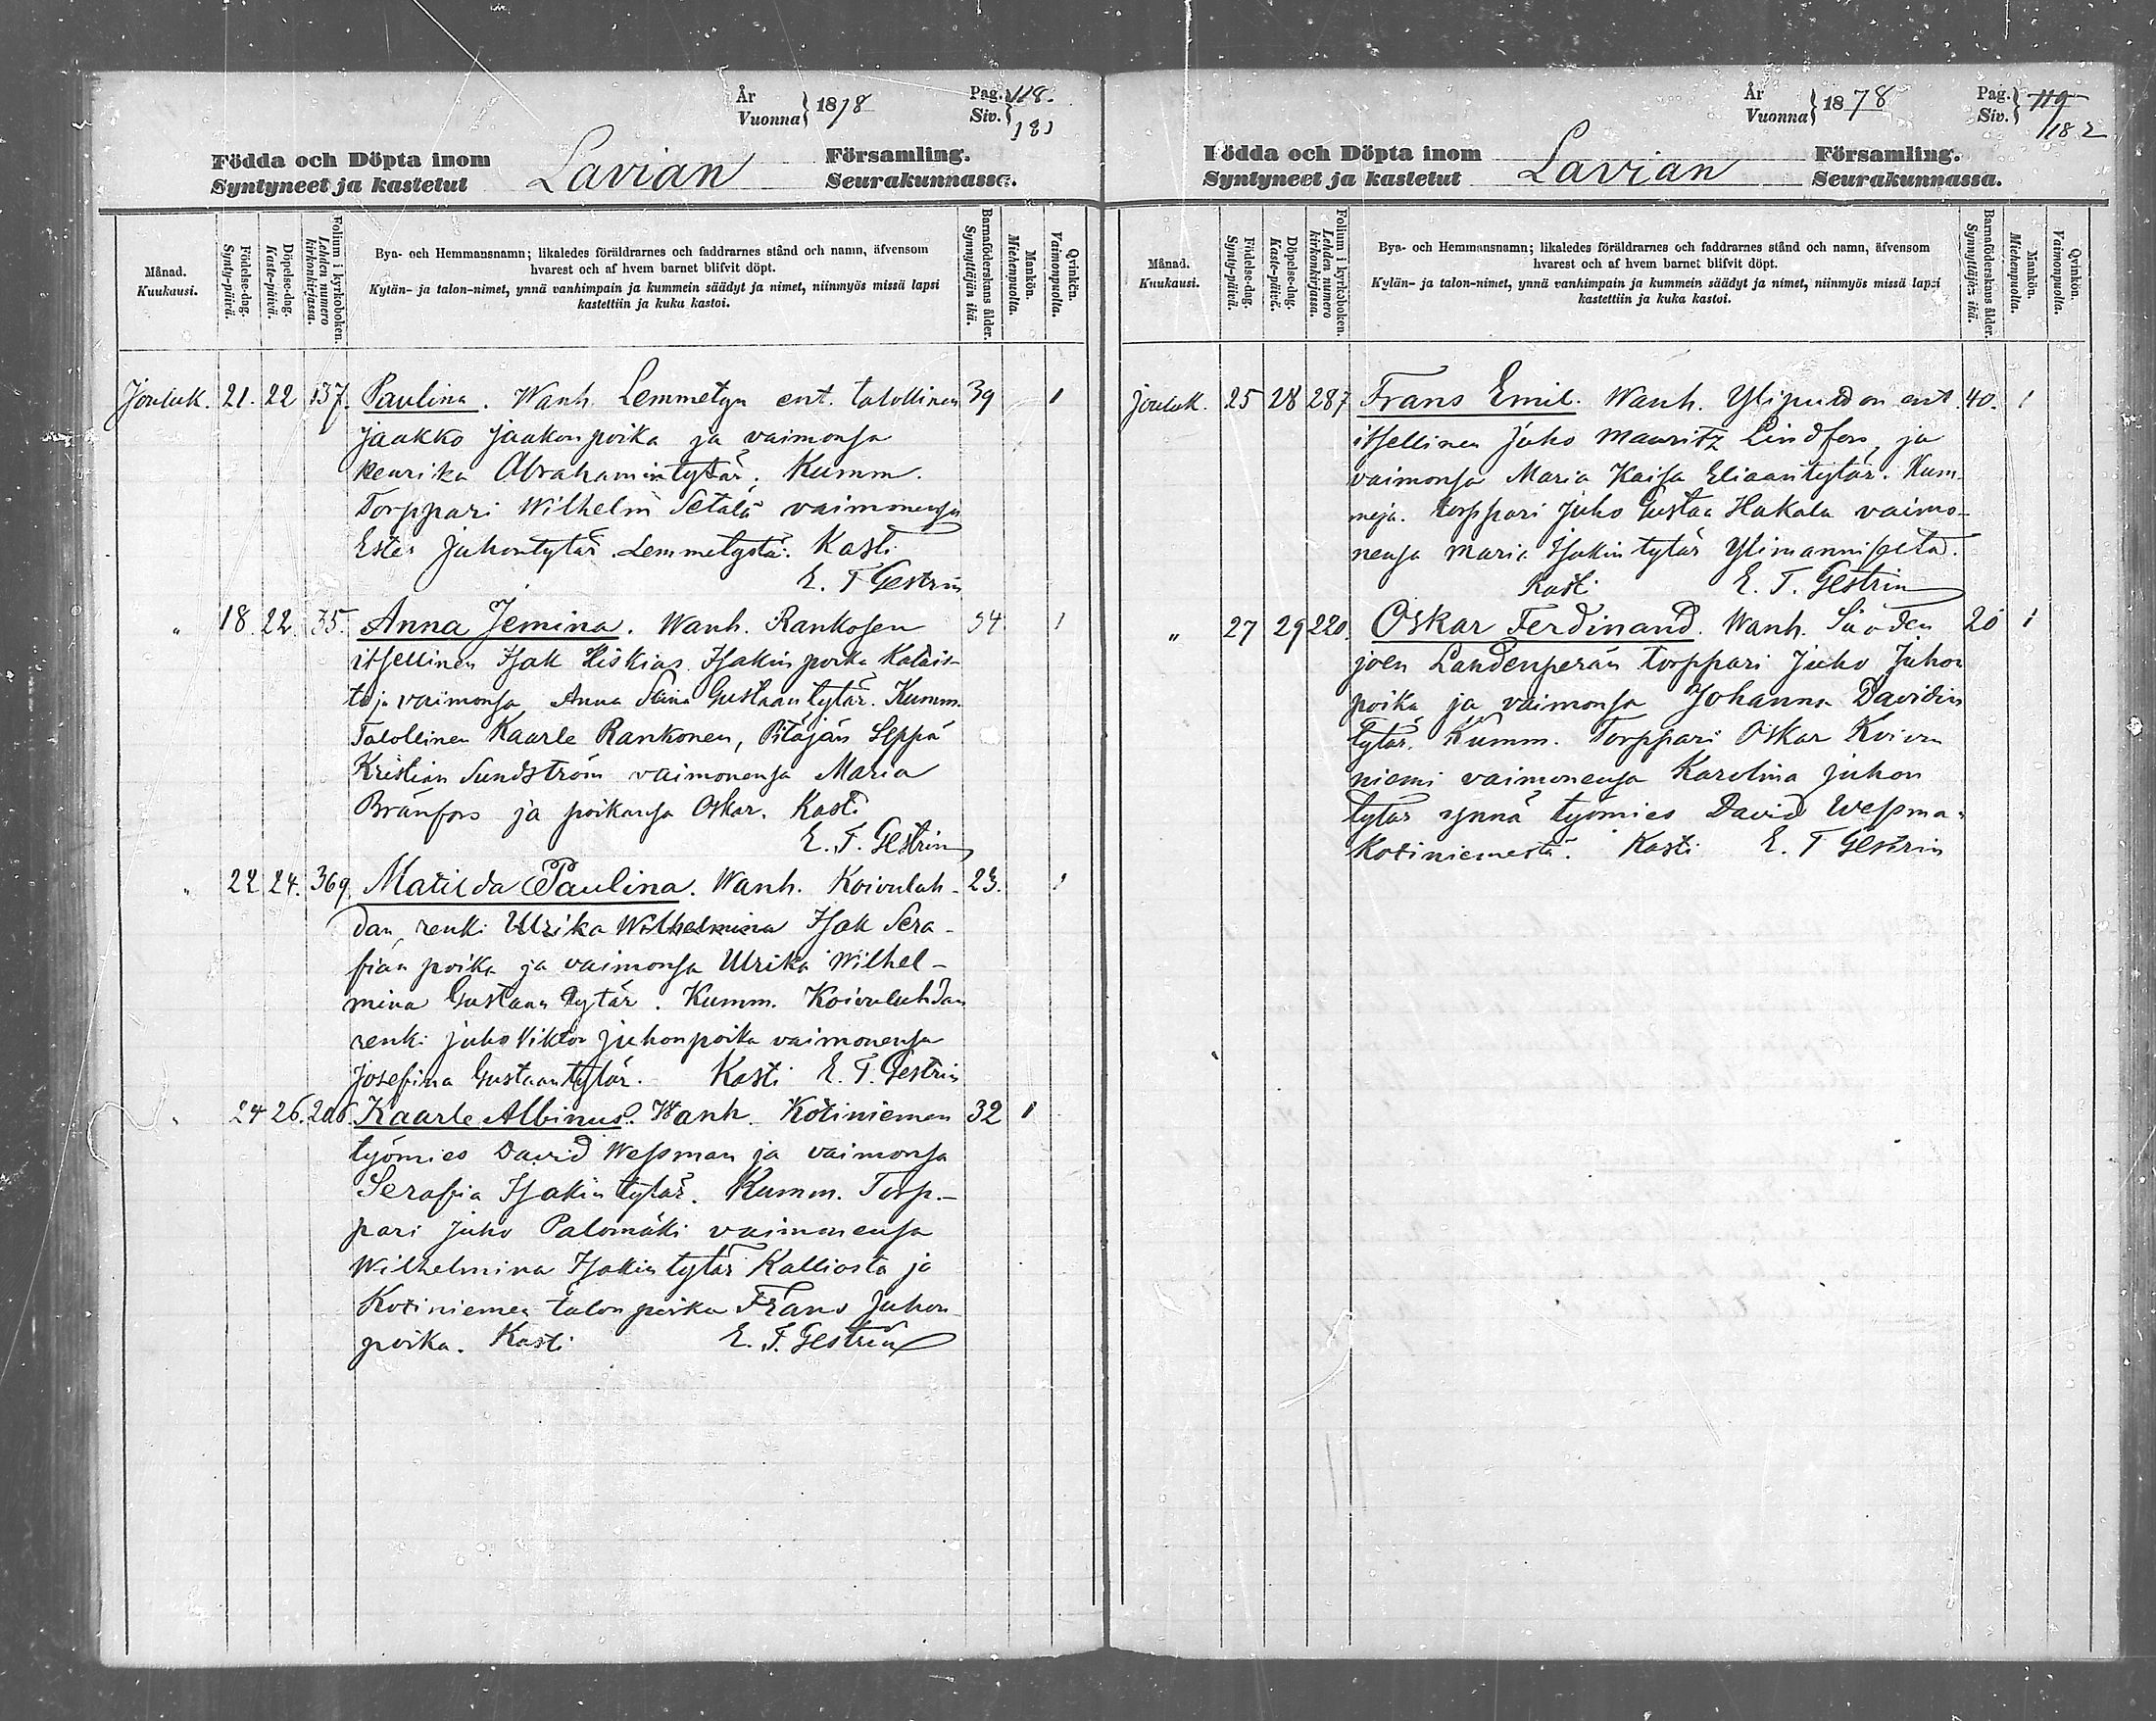 År
Vuonna } 1878
Pag.
Siv. } 118.
181
Födda och Döpta inom
Syntyneet ja kastetut
Lavian
Församling.
Seurakunnassa.
Månad.
Kuukausi.
Födelse-dag.
Synty-päivä.
Döpelse-dag.
Kaste-päivä.
Folium i kyrkoboken.
Lehden numero kirkonkirjassa.
Bya- och Hemmansnamn; likaledes föräldrarnes och faddrarnes stånd och namn, äfvensom
hvarest och af hvem barnet blifvit döpt.
Kylän- ja talon-nimet, ynnä vanhimpain ja kummein säädyt ja nimet, niinmyös missä lapsi
kastettiin ja kuka kastoi.
Barnaföderskans ålder.
Synnyttäjän ikä.
Mankön.
Miehenpuolta.
Qvinkön.
Vaimonpuolta.
Jouluk. 21. 22 137. Paulina. Wanh. Lemmetyn ent. talollinen 39 1
Jaakko Jaakonpoika ja vaimonsa
Henrika Abrahamintytär. Kumm.
Torppari Wilhelm Setälä vaimonensa
Ester Juhontytär Lemmetystä. Kasti
E. T Gestrin
" 18 22. 35. Anna Jemina. Wanh. Rankosen 34 1
itsellinen Isak Hiskias Isakinpoika Kalais-
to ja vaimonsa Anna Gustaantytär. Kumm.
Talollinen Kaarle Rankonen, Pitäjän Seppä
Kristian Sundström vaimonensa Maria
Brånfors ja poikansa Oskar. Kasti
E. T. Gestrin
" 22 24. 369. Matilda Paulina. Wanh. Koivulah- 23. 1
dan renki Ulrika Wilhelmina Isak Sera-
fian poika ja vaimonsa Ulrika Wilhel-
mina Gustaantytär. Kumm. Koivulahdan
renki Juho Viktor Juhonpoika vaimonensa
Josefina Gustaantytär. Kasti E. T. Gestrin
" 24 26. 206. Kaarle Albinus. Wanh. Kotiniemen 32 1
työmies David Wessman ja vaimonsa
Serafia Isakintytär. Kumm. Torp-
pari Juho Palomäki vaimonensa
Wilhelmina Isakintytär Kalliosta ja
Kotiniemen talonpoika Frans Juhon
poika. Kasti E. T. Gestrin
År
Vuonna } 1878
Pag.
Siv. } 119
182
Födda och Döpta inom
Syntyneet ja kastetut
Lavian
Församling.
Seurakunnassa.
Månad.
Kuukausi.
Födelse-dag.
Synty-päivä.
Döpelse-dag.
Kaste-päivä.
Folium i kyrkoboken.
Lehden numero kirkonkirjassa.
Bya- och Hemmansnamn; likaledes föräldrarnes och faddrarnes stånd och namn, äfvensom
hvarest och af hvem barnet blifvit döpt.
Kylän- ja talon-nimet, ynnä vanhimpain ja kummein säädyt ja nimet, niinmyös missä lapsi
kastettiin ja kuka kastoi.
Barnaföderskans ålder.
Synnyttäjän ikä.
Mankön.
Miehenpuolta.
Qvinkön.
Vaimonpuolta.
Jouluk. 25 28 287 Frans Emil. Wanh. ent. 40. 1
itsellinen Juho Mauritz Lindfors, ja
vaimonsa Maria Kaisa Eliaantytär. Kum-
meja. torppari Juho Gustaa Hakala vaimo-
nensa Maria Isakintytär
Kasti E. T. Gestrin
" 27 29 220. Oskar Ferdinand. Wanh. 20 1
joen Landenperän torppari Juho Juhon
poika ja vaimonsa Johanna Davidin
tytär. Kumm. Torppari Oskar Koivu
niemi vaimonensa Karolina Juhon
tytär ynnä työmies David Wessman
Kotiniemestä. Kasti E. T Gestrin